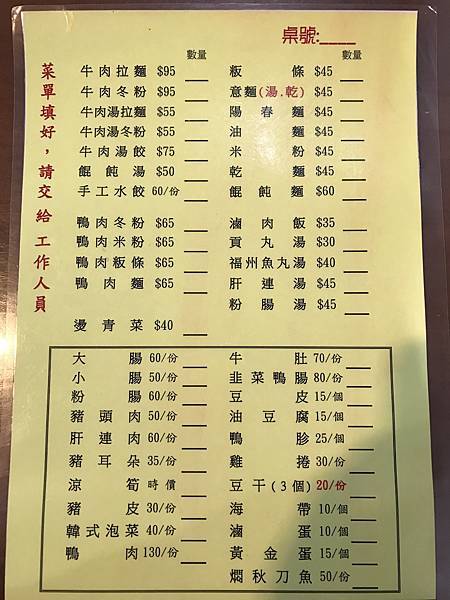 桌號:____
菜單填好，請交給工作人員
數量
牛肉拉麵 $95
牛肉冬粉 $95
牛肉湯拉麵 $55
牛肉湯冬粉 $55
牛肉湯餃 $75
餛飩湯 $50
手工水餃 60/份
鴨肉冬粉 $65
鴨肉米粉 $65
鴨肉粄條 $65
鴨肉麵 $65
燙青菜 $40
數量
粄條 $45
意麵(湯.乾) $45
陽春麵 $45
油麵 $45
米粉 $45
乾麵 $45
餛飩麵 $60
滷肉飯 $35
貢丸湯 $30
福州魚丸湯 $40
肝連湯 $45
粉腸湯 $45
大腸 60/份
小腸 50/份
粉腸 60/份
豬頭肉 50/份
肝連肉 60/份
豬耳朵 35/份
涼筍 時價
豬皮 30/份
韓式泡菜 40/份
鴨肉 130/份
牛肚 70/份
韭菜鴨腸 80/份
豆皮 15/個
油豆腐 15/個
鴨胗 25/個
雞捲 30/份
豆干(3個) 20/份
海帶 10/個
滷蛋 10/個
黃金蛋 15/個
燜秋刀魚 50/份